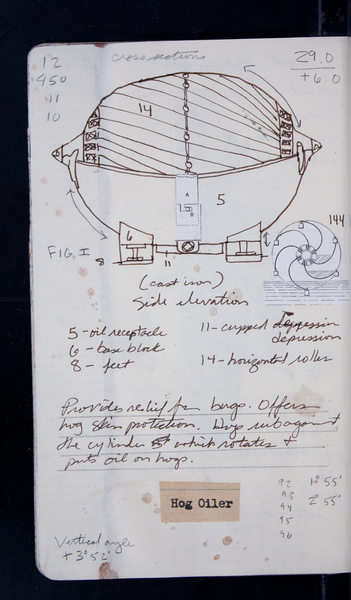 12
950
11
10
cross sections
29.0
+6 0
14
A
5
144
6
FIG. I
8
11
(cast iron)
Side elevation
5 - oil receptacle
6 - base block
8 - feet
11 - cupped depression
depression
14 - horizontal roller
Provides relief for hogs. Offers
hog skin protection. Hogs rub against
the cylinder which rotates +
puts oil on hogs.
Hog Oiler
92
93
94
95
96
1° 55'
2° 55'
Vertical angle
+ 3° 52'